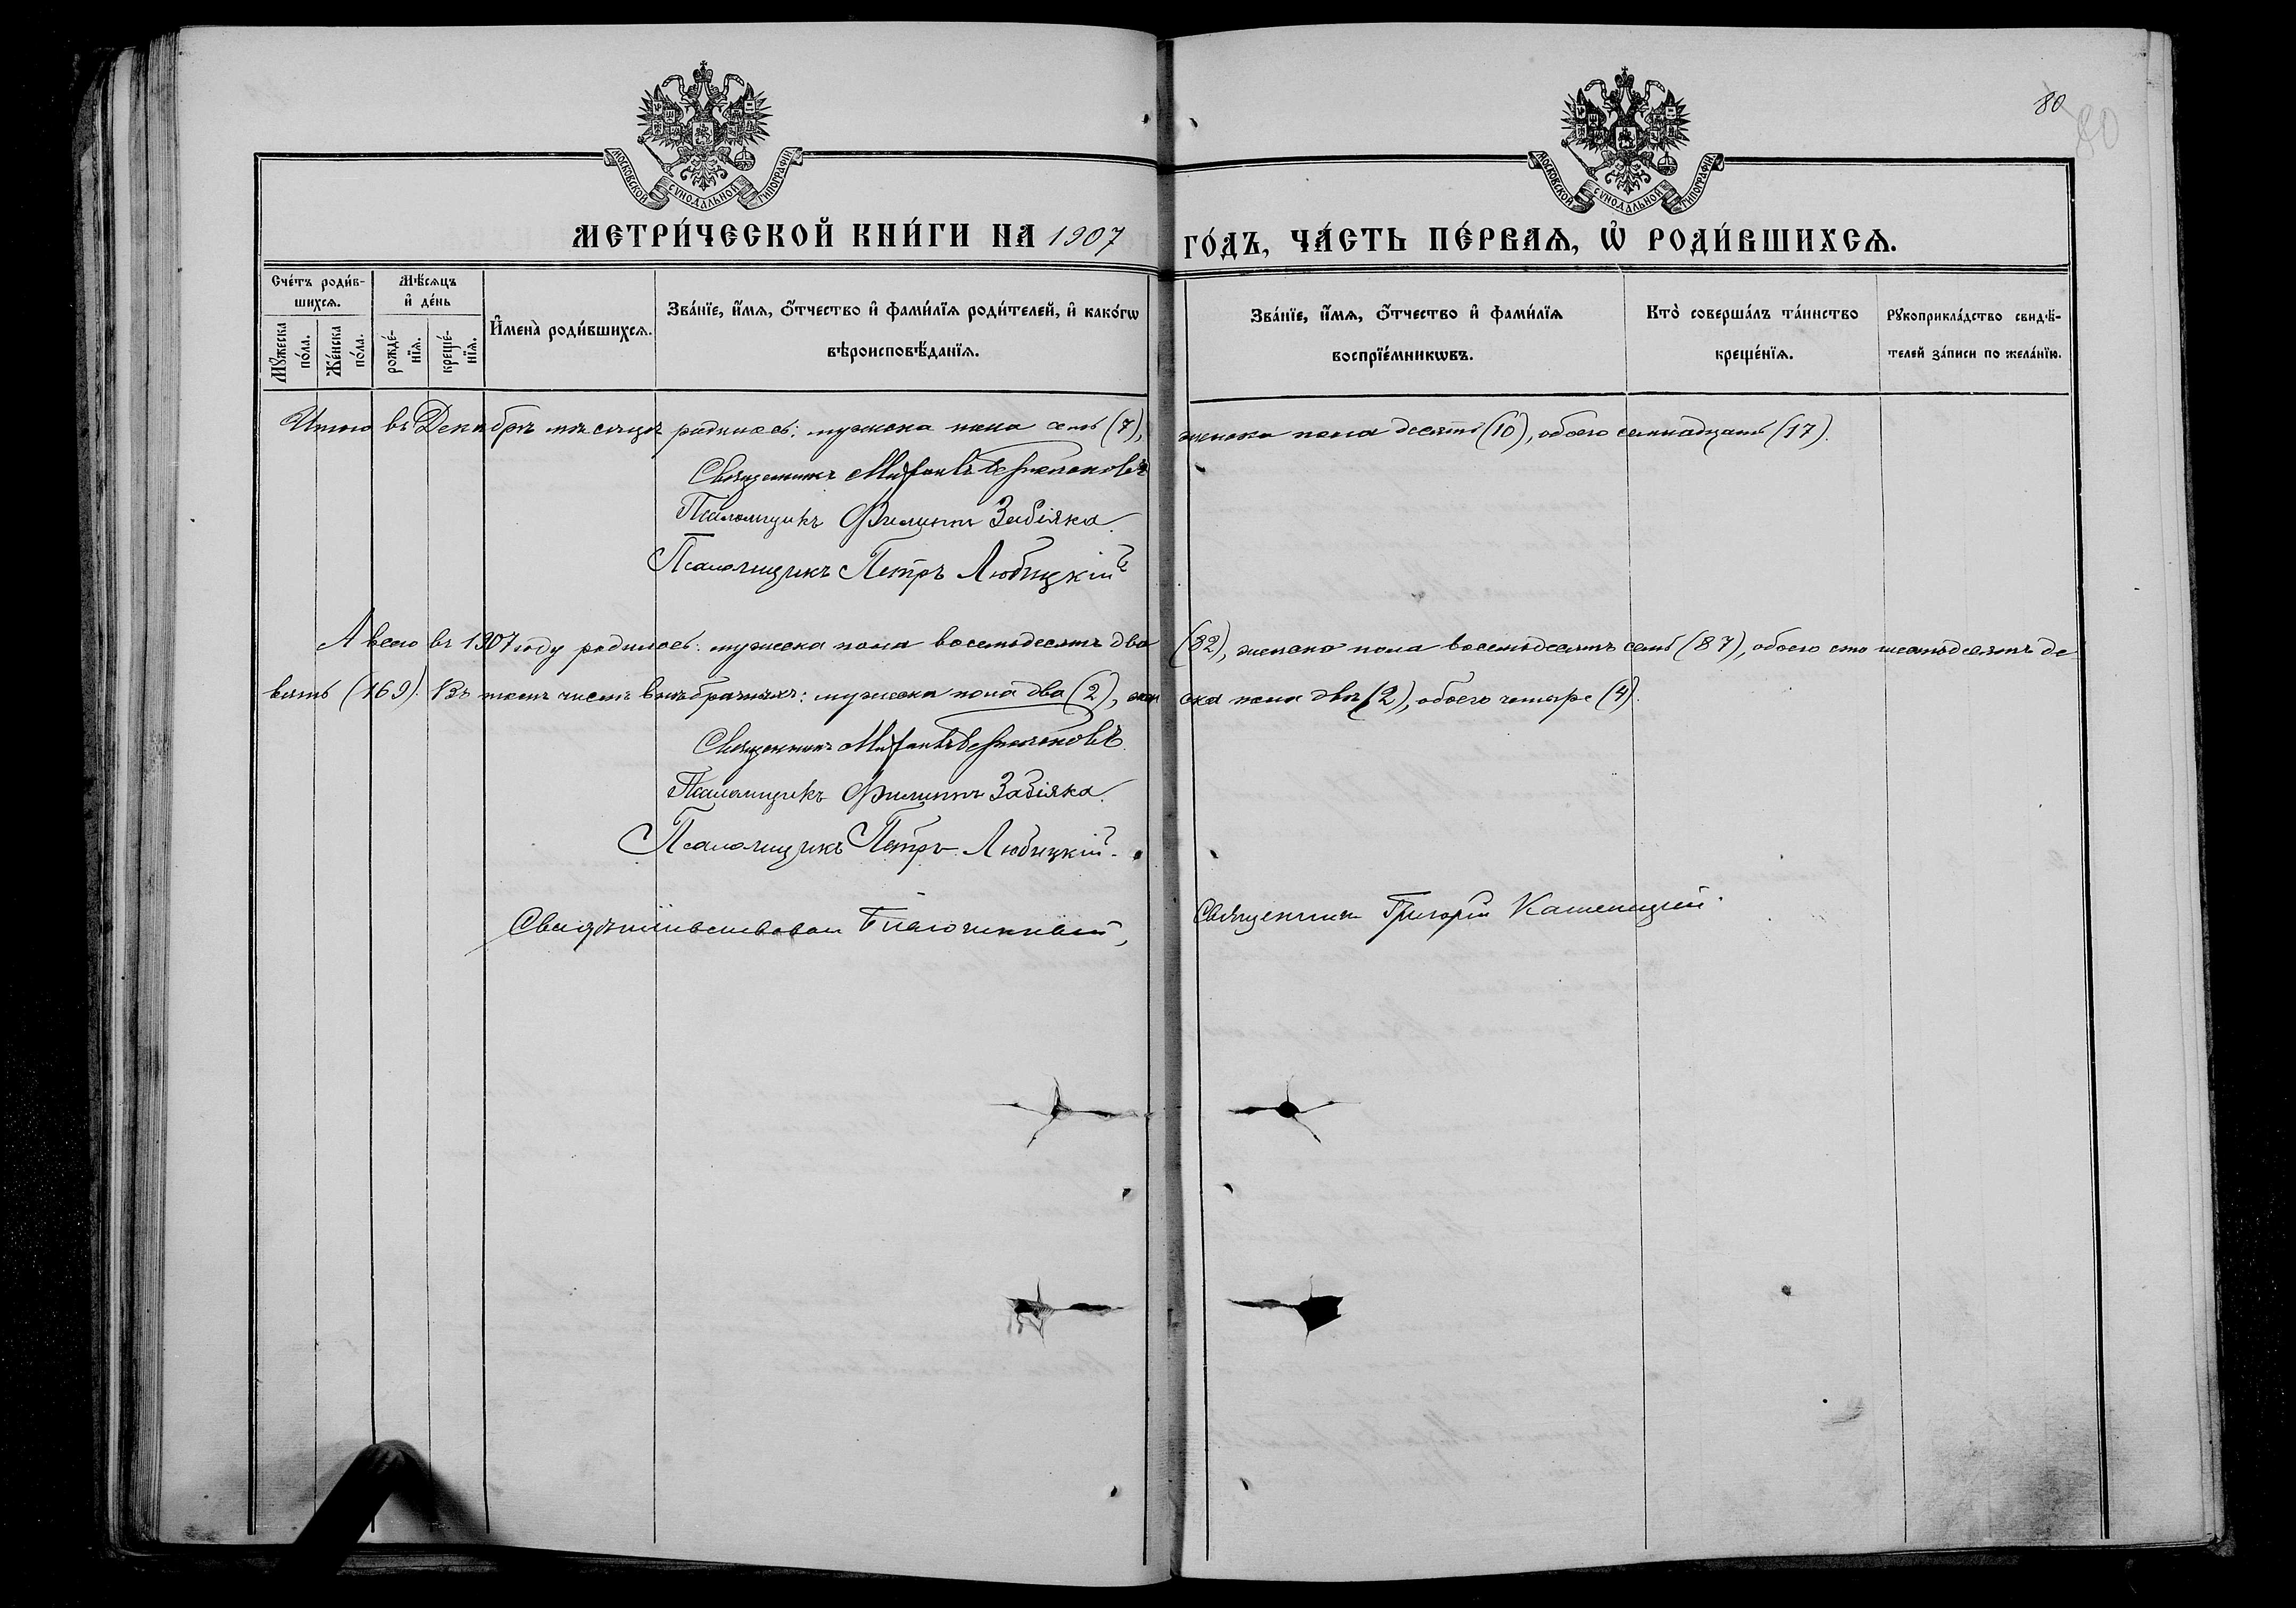 80
80
МОСКОВСКОЙ СѴНОДАЛЬНОЙ ТИПОГРАФІИ
МОСКОВСКОЙ СѴНОДАЛЬНОЙ ТИПОГРАФІИ
МЕТРИ́ЧЕСКОЙ КНИ́ГИ НА 1907 ГО́ДЪ, ЧА́СТЬ ПЕ́РВАѦ, Ѡ҆ РОДИ́ВШИХСѦ.
Сче́тъ роди́в-
шихсѧ.
Мꙋ́жеска по́ла.
Же́нска по́ла.
Мѣ́сѧцъ
и҆ де́нь
рожде́-нїѧ.
креще́-нїѧ.
И҆мена̀ роди́вшихсѧ.
Зва́нїе, и҆́мѧ, о҆́тчество и҆ фами́лїѧ роди́телей, и҆ како́гѡ
вѣроисповѣ́данїѧ.
Зва́нїе, и҆́мѧ, о҆́тчество и҆ фами́лїѧ
воспрїе́мникѡвъ.
Кто̀ соверша́лъ та́инство
креще́нїѧ.
Рꙋкоприкла́дство свидѣ́-
телей за́писи по жела́нїю.
Итого въ Декабрѣ мѣсяцѣ родилось: мужеска пола семь (7), женска пола десять (10), обоего семнадцать (17).
Священникъ
Псаломщикъ Филиппъ Забіяка.
Псаломщикъ Петръ Любицкій
А всего въ 1907 году родилось: мужеска пола восемьдесятъ два (82), женска пола восемьдесятъ семь (87), обоего сто шестьдесятъ де-
вять (169). Въ томъ числѣ внѣбрачныхъ: мужеска пола два (2), женска пола двѣ (2), обоего четыре (4).
Священникъ
Псаломщикъ Филиппъ Забіяка.
Псаломщикъ Петръ Любицкій.
Свидѣтельствовалъ Благочинный, Священникъ Григорій